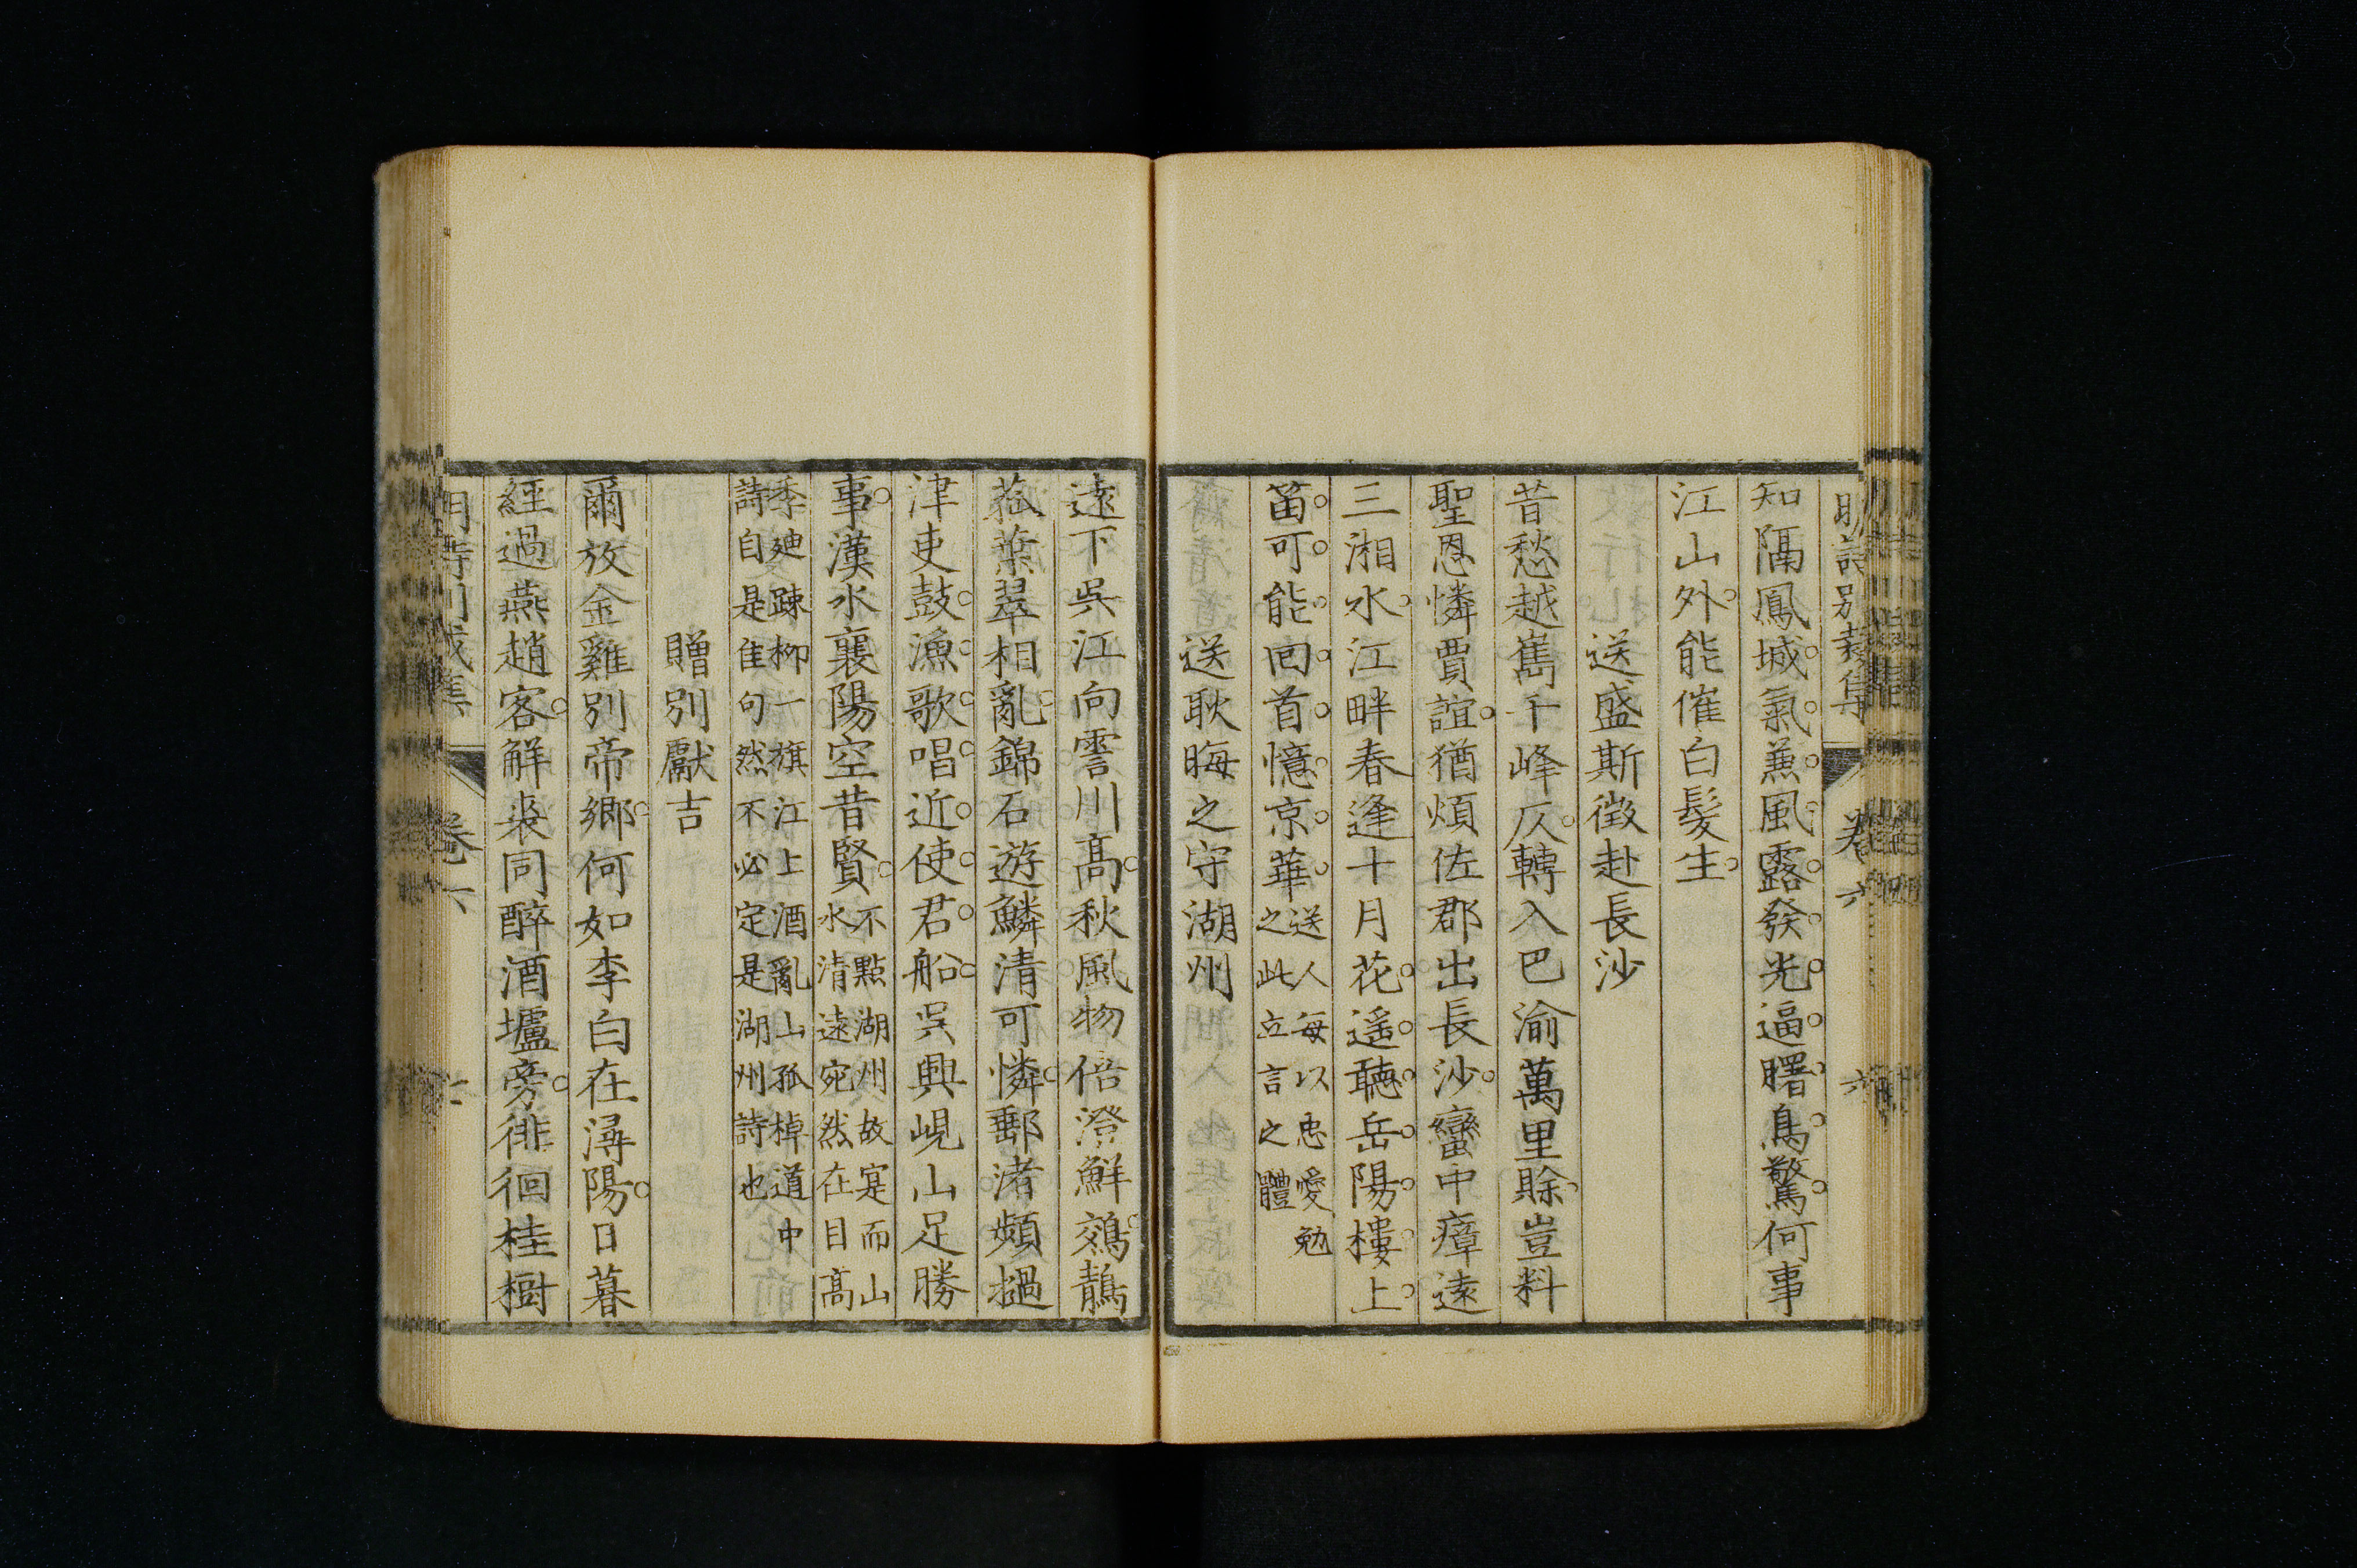 明詩別裁集 卷六 六
知隔鳳城。氣蒸風露發。光逼曙鳥驚。何事
江山外。能催白髮生。
送盛斯徵赴長沙
昔愁越嶲千峰仄。轉入巴渝萬里賒。豈料
聖恩憐賈誼。猶煩佐郡出長沙。蠻中瘴遠
三湘水。江畔春逢十月花。遙聽岳陽樓上
笛。可能回首憶京華。送人每以忠愛勉
之此立言之體
送耿晦之守湖州
遠下吳江向霅川。高秋風物倍澄鮮。鵁鶄
菰葉翠相亂。錦石遊鱗清可憐。郵渚頻撾
津吏鼓。漁歌唱近使君船。吳興峴山足勝
事。漢水襄陽空昔賢。不點湖州故寔而山
水清遠宛然在目高
季迪疎柳一旗江上酒亂山孤棹道中
詩自是佳句然不必定是湖州詩也
贈別獻吉
爾放金雞別帝鄉。何如李白在潯陽。日暮
經過燕趙客。解裘同醉酒壚旁。徘徊桂樹
卷六